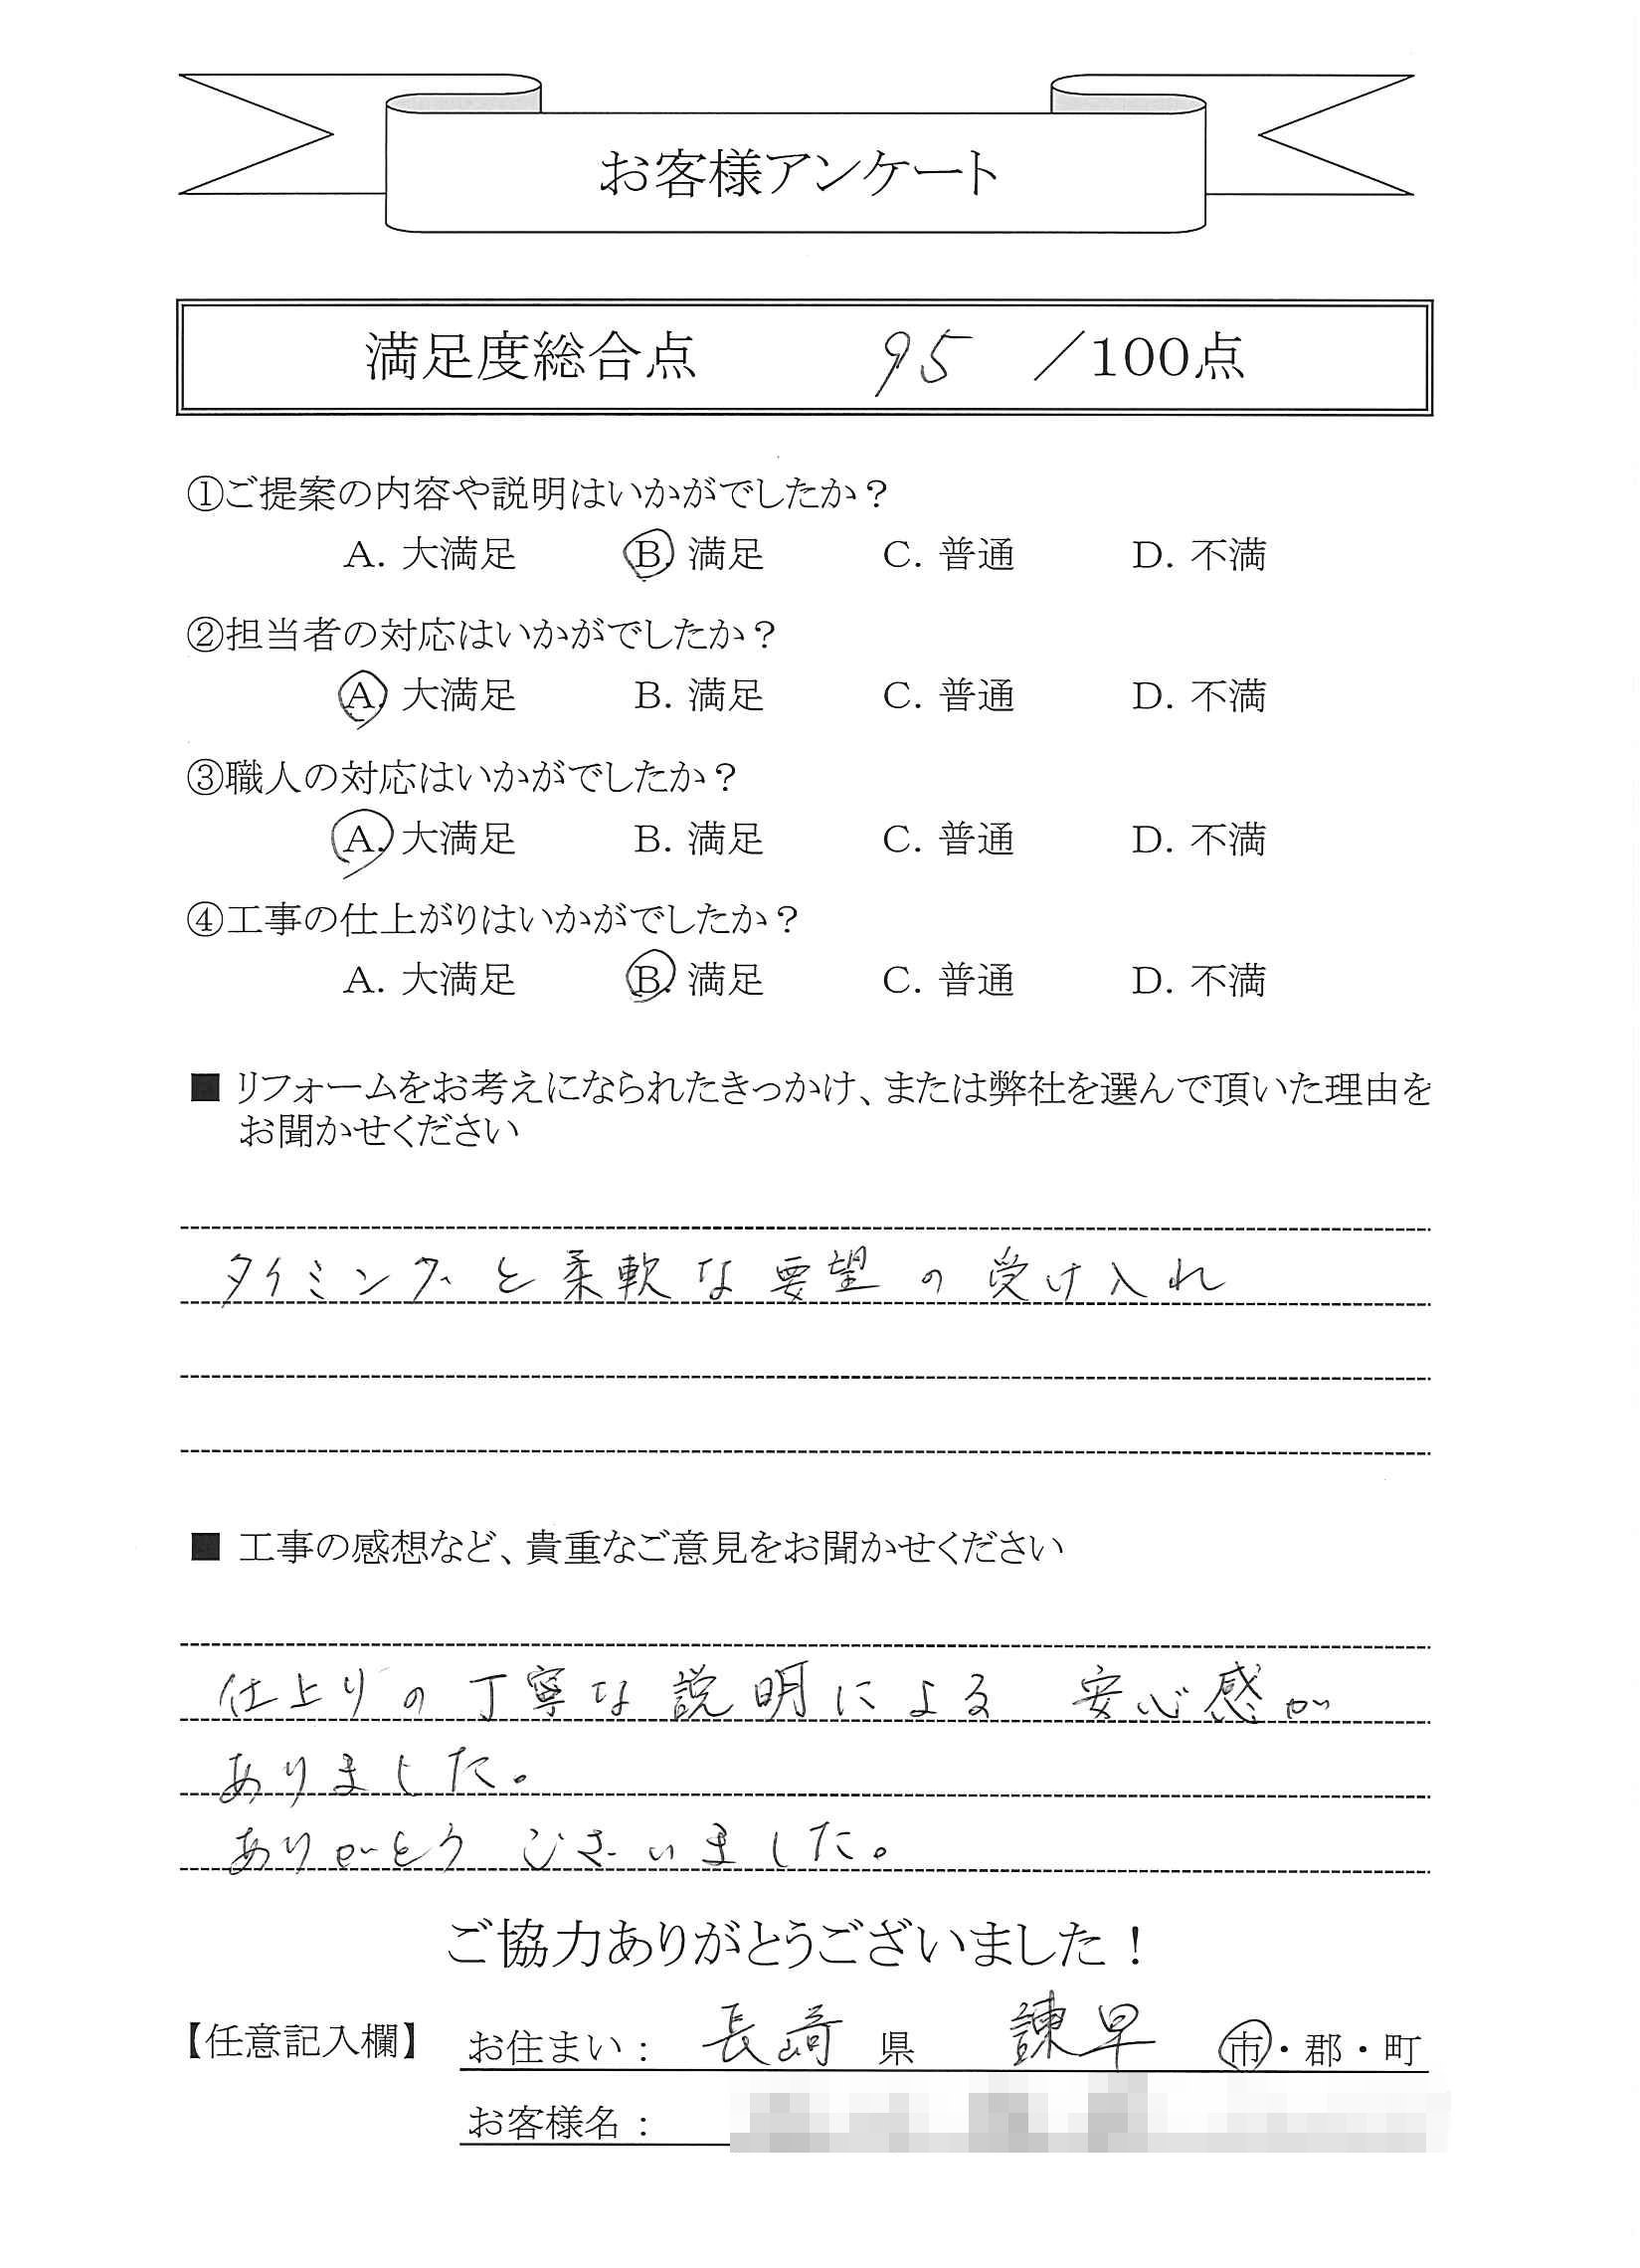 お客様アンケート
満足度総合点 95 ／100点
①ご提案の内容や説明はいかがでしたか？
A. 大満足 B. 満足 C. 普通 D. 不満
②担当者の対応はいかがでしたか？
A. 大満足 B. 満足 C. 普通 D. 不満
③職人の対応はいかがでしたか？
A. 大満足 B. 満足 C. 普通 D. 不満
④工事の仕上がりはいかがでしたか？
A. 大満足 B. 満足 C. 普通 D. 不満
■ リフォームをお考えになられたきっかけ、または弊社を選んで頂いた理由を
お聞かせください
タイミングと柔軟な要望の受け入れ
■ 工事の感想など、貴重なご意見をお聞かせください
仕上りの丁寧な説明による 安心感が
ありました。
ありがとうございました。
ご協力ありがとうございました！
【任意記入欄】 お住まい： 長崎 県 諫早 市・郡・町
お客様名：